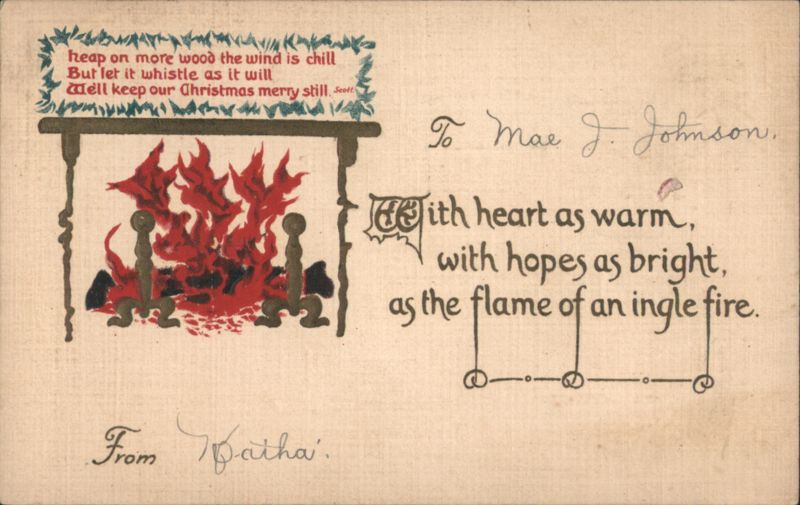 heap on more wood the wind is chill
But let it whistle as it will
We'll keep our Christmas merry still. Scott.
To Mae J. Johnson.
With heart as warm,
with hopes as bright,
as the flame of an ingle fire.
From